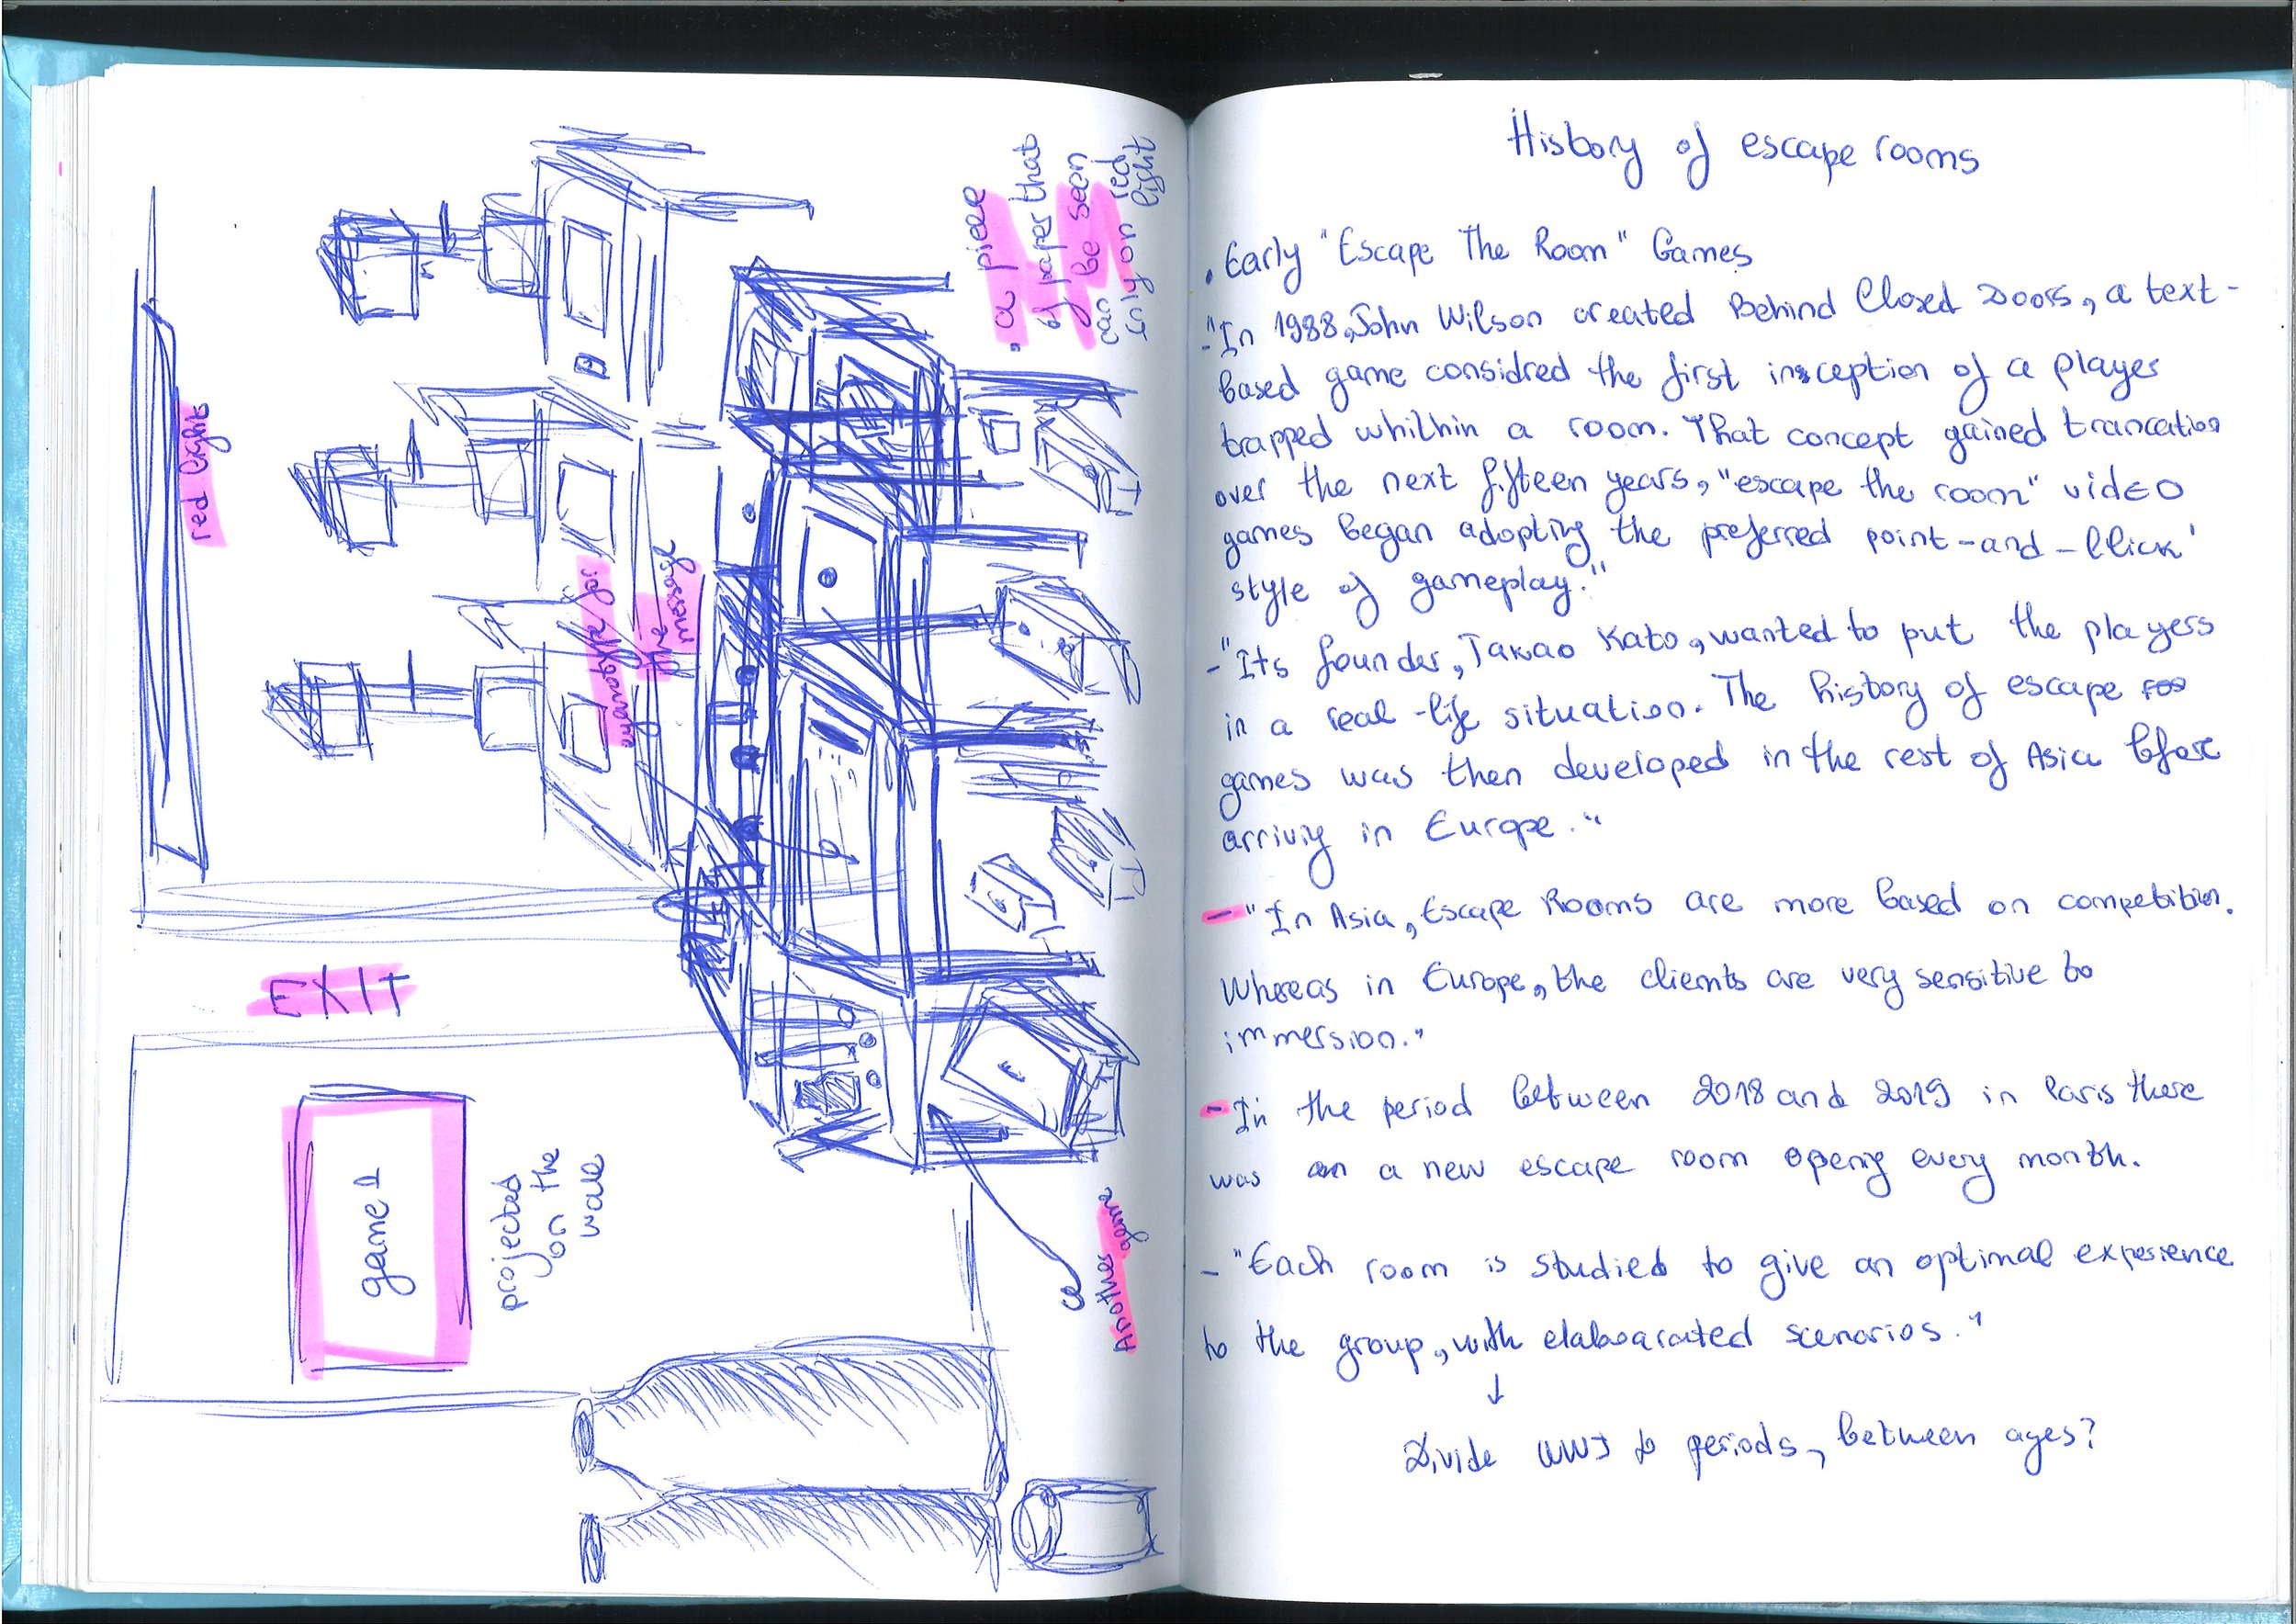 red light
EXIT
game 1
projected
on the
wall
cryptology for
the
message
• a piece
of paper that
can be seen
only on red
light
Another game
History of escape rooms
• Early "Escape The Room" Games
- "In 1988, John Wilson created Behind Closed Doors, a text-
based game considred the first insception of a player
trapped whithin a room. That concept gained trancation
over the next fifteen years, "escape the room" video
games began adopting the preferred point-and-click
style of gameplay."
- "Its founder, Takao Kato, wanted to put the players
in a real-life situation. The history of escape roo
games was then developed in the rest of Asia before
arriving in Europe."
- "In Asia, Escape Rooms are more based on competition.
Whereas in Europe, the clients are very sensitive to
immersion."
- In the period between 2018 and 2019 in Paris there
was a new escape room opening every month.
- "Each room is studied to give an optimal experience
to the group, with elaboarated scenarios."
↓
Divide periods, between ages?